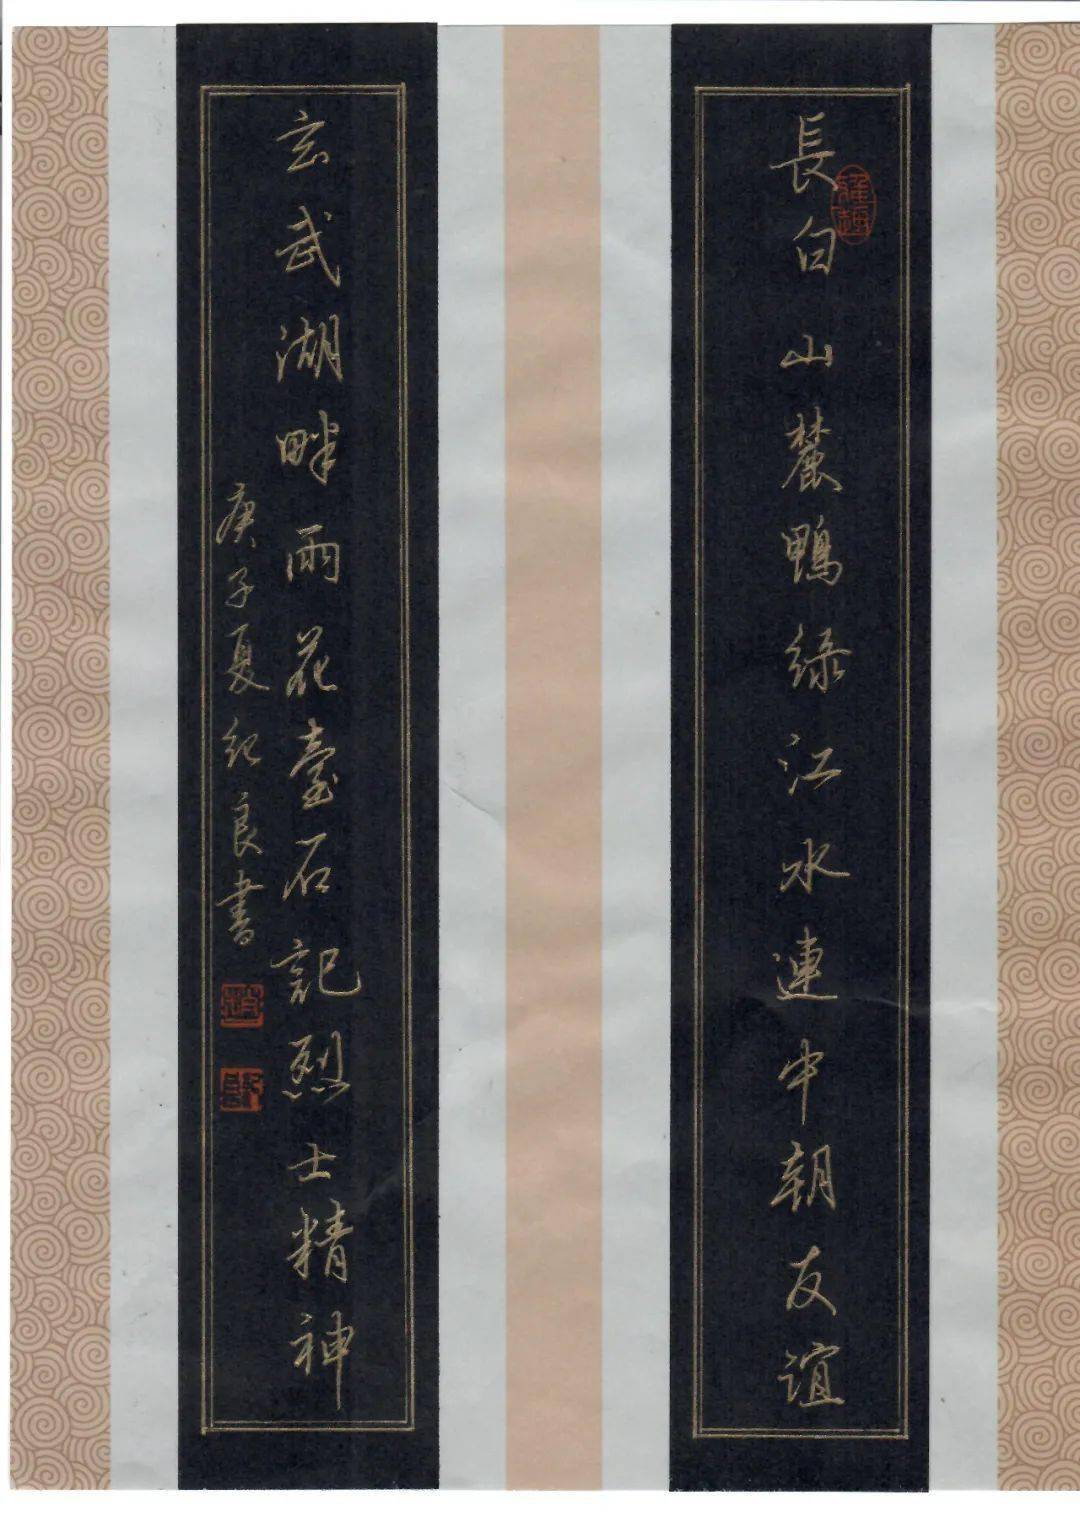 長白山麓鴨绿江水連中朝友誼
玄武湖畔雨花臺石記烈士精神
庚子夏纪良書
雅趣